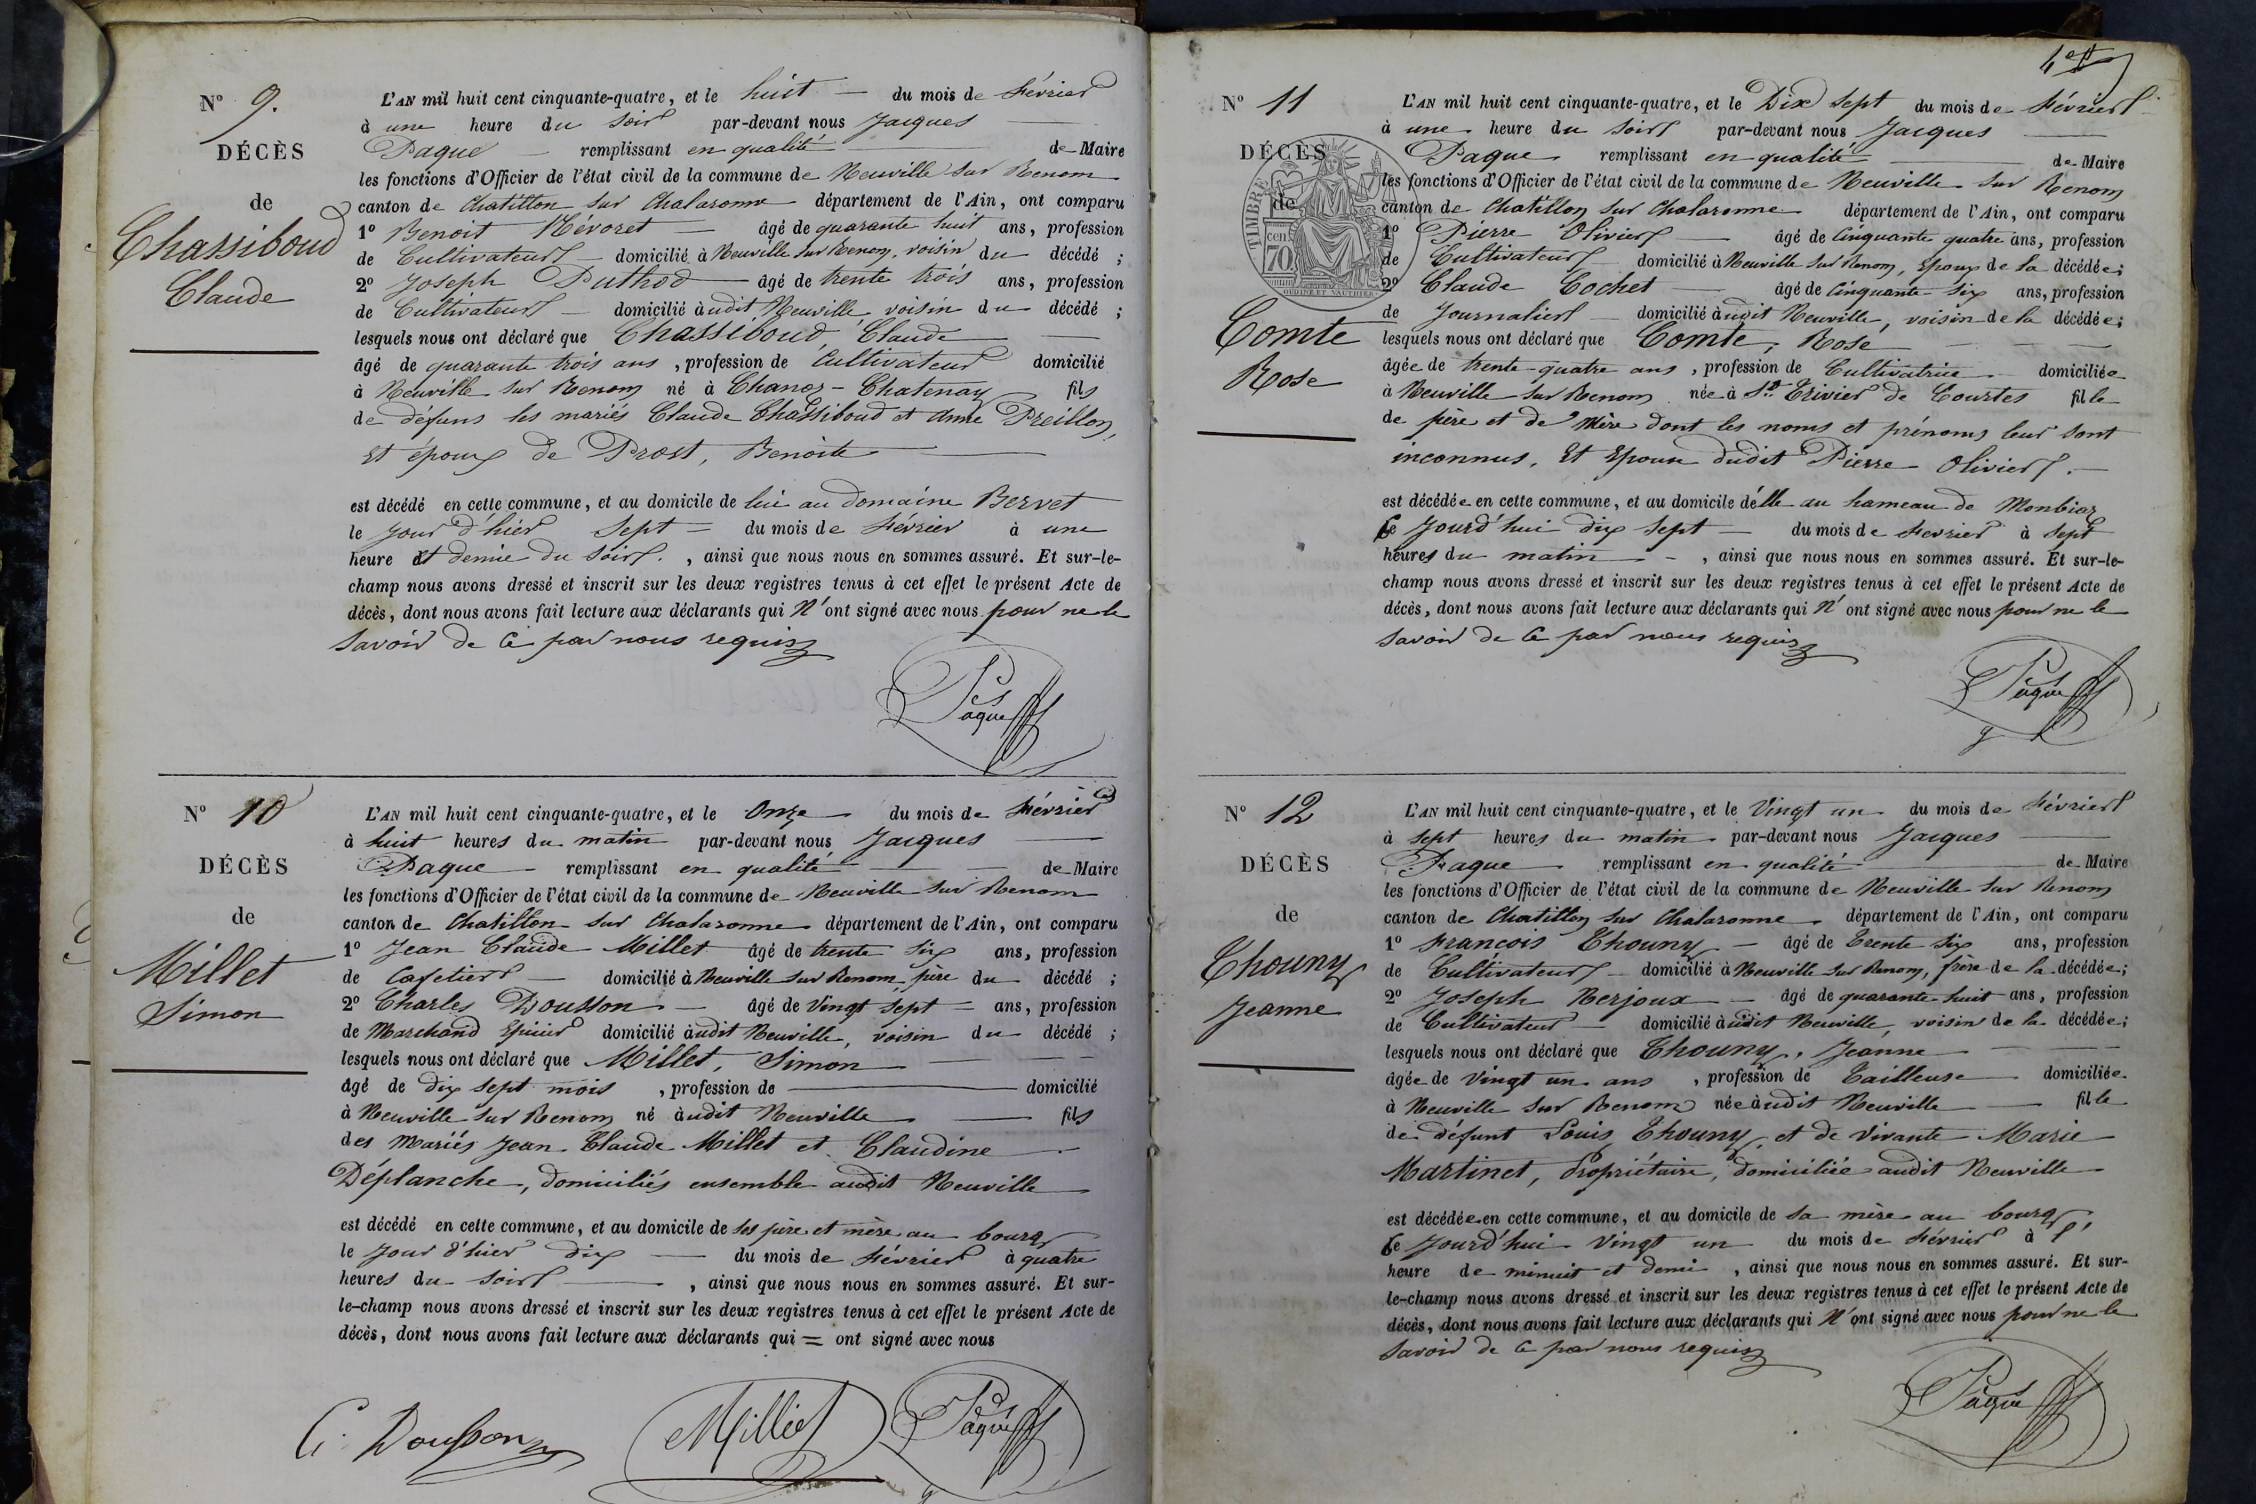 N° 9.
DÉCÈS
de
Chassiboud
Claude
L'AN mil huit cent cinquante-quatre, et le huit du mois de Février
à une heure du soir par-devant nous Jacques
Paque remplissant en qualité de Maire
les fonctions d'Officier de l'état civil de la commune de Neuville sur Renom
canton de Chatillon sur Chalaronne département de l'Ain, ont comparu
1° Benoit Névoret âgé de quarante huit ans, profession
de Cultivateur domicilié à Neuville sur Renom, voisin du décédé ;
2° Joseph Puthod âgé de trente trois ans, profession
de Cultivateur domicilié audit Neuville, voisin du décédé ;
lesquels nous ont déclaré que Chassiboud, Claude
âgé de quarante trois ans, profession de Cultivateur domicilié
à Neuville sur Renom né à Chanoz-Chatenay fils
de défuns les mariés Claude Chassiboud et Anne Preillon,
et époux de Prost, Benoite
est décédé en cette commune, et au domicile de lui au domaine Bervet
le jour d'hier sept du mois de Février à une
heure et demie du soir, ainsi que nous nous en sommes assuré. Et sur-le-
champ nous avons dressé et inscrit sur les deux registres tenus à cet effet le présent Acte de
décès, dont nous avons fait lecture aux déclarants qui n'ont signé avec nous pour ne le
savoir de ce par nous requis
Paque
N° 10
DÉCÈS
de
Millet
Simon
L'AN mil huit cent cinquante-quatre, et le Onze du mois de Février
à huit heures du matin par-devant nous Jacques
Paque remplissant en qualité de Maire
les fonctions d'Officier de l'état civil de la commune de Neuville sur Renom
canton de Chatillon sur Chalaronne département de l'Ain, ont comparu
1° Jean Claude Millet âgé de trente six ans, profession
de Cafetier domicilié à Neuville sur Renom, père du décédé ;
2° Charles Dousson âgé de vingt sept ans, profession
de Marchand Epicier domicilié audit Neuville, voisin du décédé ;
lesquels nous ont déclaré que Millet, Simon
âgé de dix sept mois, profession de domicilié
à Neuville sur Renom né audit Neuville fils
des mariés Jean Claude Millet et Claudine
Déplanche, domiciliés ensemble audit Neuville
est décédé en cette commune, et au domicile de ses père et mère au bourg
le jour d'hier dix du mois de Février à quatre
heures du soir, ainsi que nous nous en sommes assuré. Et sur-
le-champ nous avons dressé et inscrit sur les deux registres tenus à cet effet le présent Acte de
décès, dont nous avons fait lecture aux déclarants qui = ont signé avec nous
C. Dousson Milliet Paque
N° 11
DÉCÈS
de
TIMBRE
cen 70
OUDINE ET VAUTHIER
Comte
Rose
L'AN mil huit cent cinquante-quatre, et le Dix sept du mois de Février
à une heure du soir par-devant nous Jacques
Paque remplissant en qualité de Maire
les fonctions d'Officier de l'état civil de la commune de Neuville sur Renom
canton de Chatillon sur Chalaronne département de l'Ain, ont comparu
1° Pierre Olivier âgé de Cinquante quatre ans, profession
de Cultivateur domicilié à Neuville sur Renom, Epoux de la décédée ;
2° Claude Cochet âgé de Cinquante-six ans, profession
de Journalier domicilié audit Neuville, voisin de la décédée ;
lesquels nous ont déclaré que Comte, Rose
âgée de trente-quatre ans, profession de Cultivatrice domiciliée
à Neuville sur Renom née à St Trivier de Courtes fille
de père et de mère dont les noms et prénoms leur sont
inconnus, Et Epouse dudit Pierre Olivier.
est décédée en cette commune, et au domicile d'elle au hameau de Monbioz
Ce Jourd'hui dix sept du mois de Fevrier à sept
heures du matin, ainsi que nous nous en sommes assuré. Et sur-le-
champ nous avons dressé et inscrit sur les deux registres tenus à cet effet le présent Acte de
décès, dont nous avons fait lecture aux déclarants qui n'ont signé avec nous pour ne le
savoir de ce par nous requis
Paque
N° 12
DÉCÈS
de
Thouny
Jeanne
L'AN mil huit cent cinquante-quatre, et le Vingt un du mois de Février
à sept heures du matin par-devant nous Jacques
Paque remplissant en qualité de Maire
les fonctions d'Officier de l'état civil de la commune de Neuville sur Renom
canton de Chatillon sur Chalaronne département de l'Ain, ont comparu
1° François Thouny âgé de Trente six ans, profession
de Cultivateur domicilié à Neuville sur Renom, frère de la décédée ;
2° Joseph Nerjoux âgé de quarante-huit ans, profession
de Cultivateur domicilié audit Neuville, voisin de la décédée ;
lesquels nous ont déclaré que Thouny, Jeanne
âgée de vingt un ans, profession de Tailleuse domiciliée
à Neuville sur Renom née audit Neuville fille
de défunt Louis Thouny, et de vivante Marie
Martinet, Propriétaire, domiciliée audit Neuville
est décédée en cette commune, et au domicile de sa mère au bourg,
Ce Jourd'hui vingt un du mois de Février à l'
heure de minuit et demi, ainsi que nous nous en sommes assuré. Et sur-
le-champ nous avons dressé et inscrit sur les deux registres tenus à cet effet le présent Acte de
décès, dont nous avons fait lecture aux déclarants qui n'ont signé avec nous pour ne le
savoir de ce par nous requis
Paque